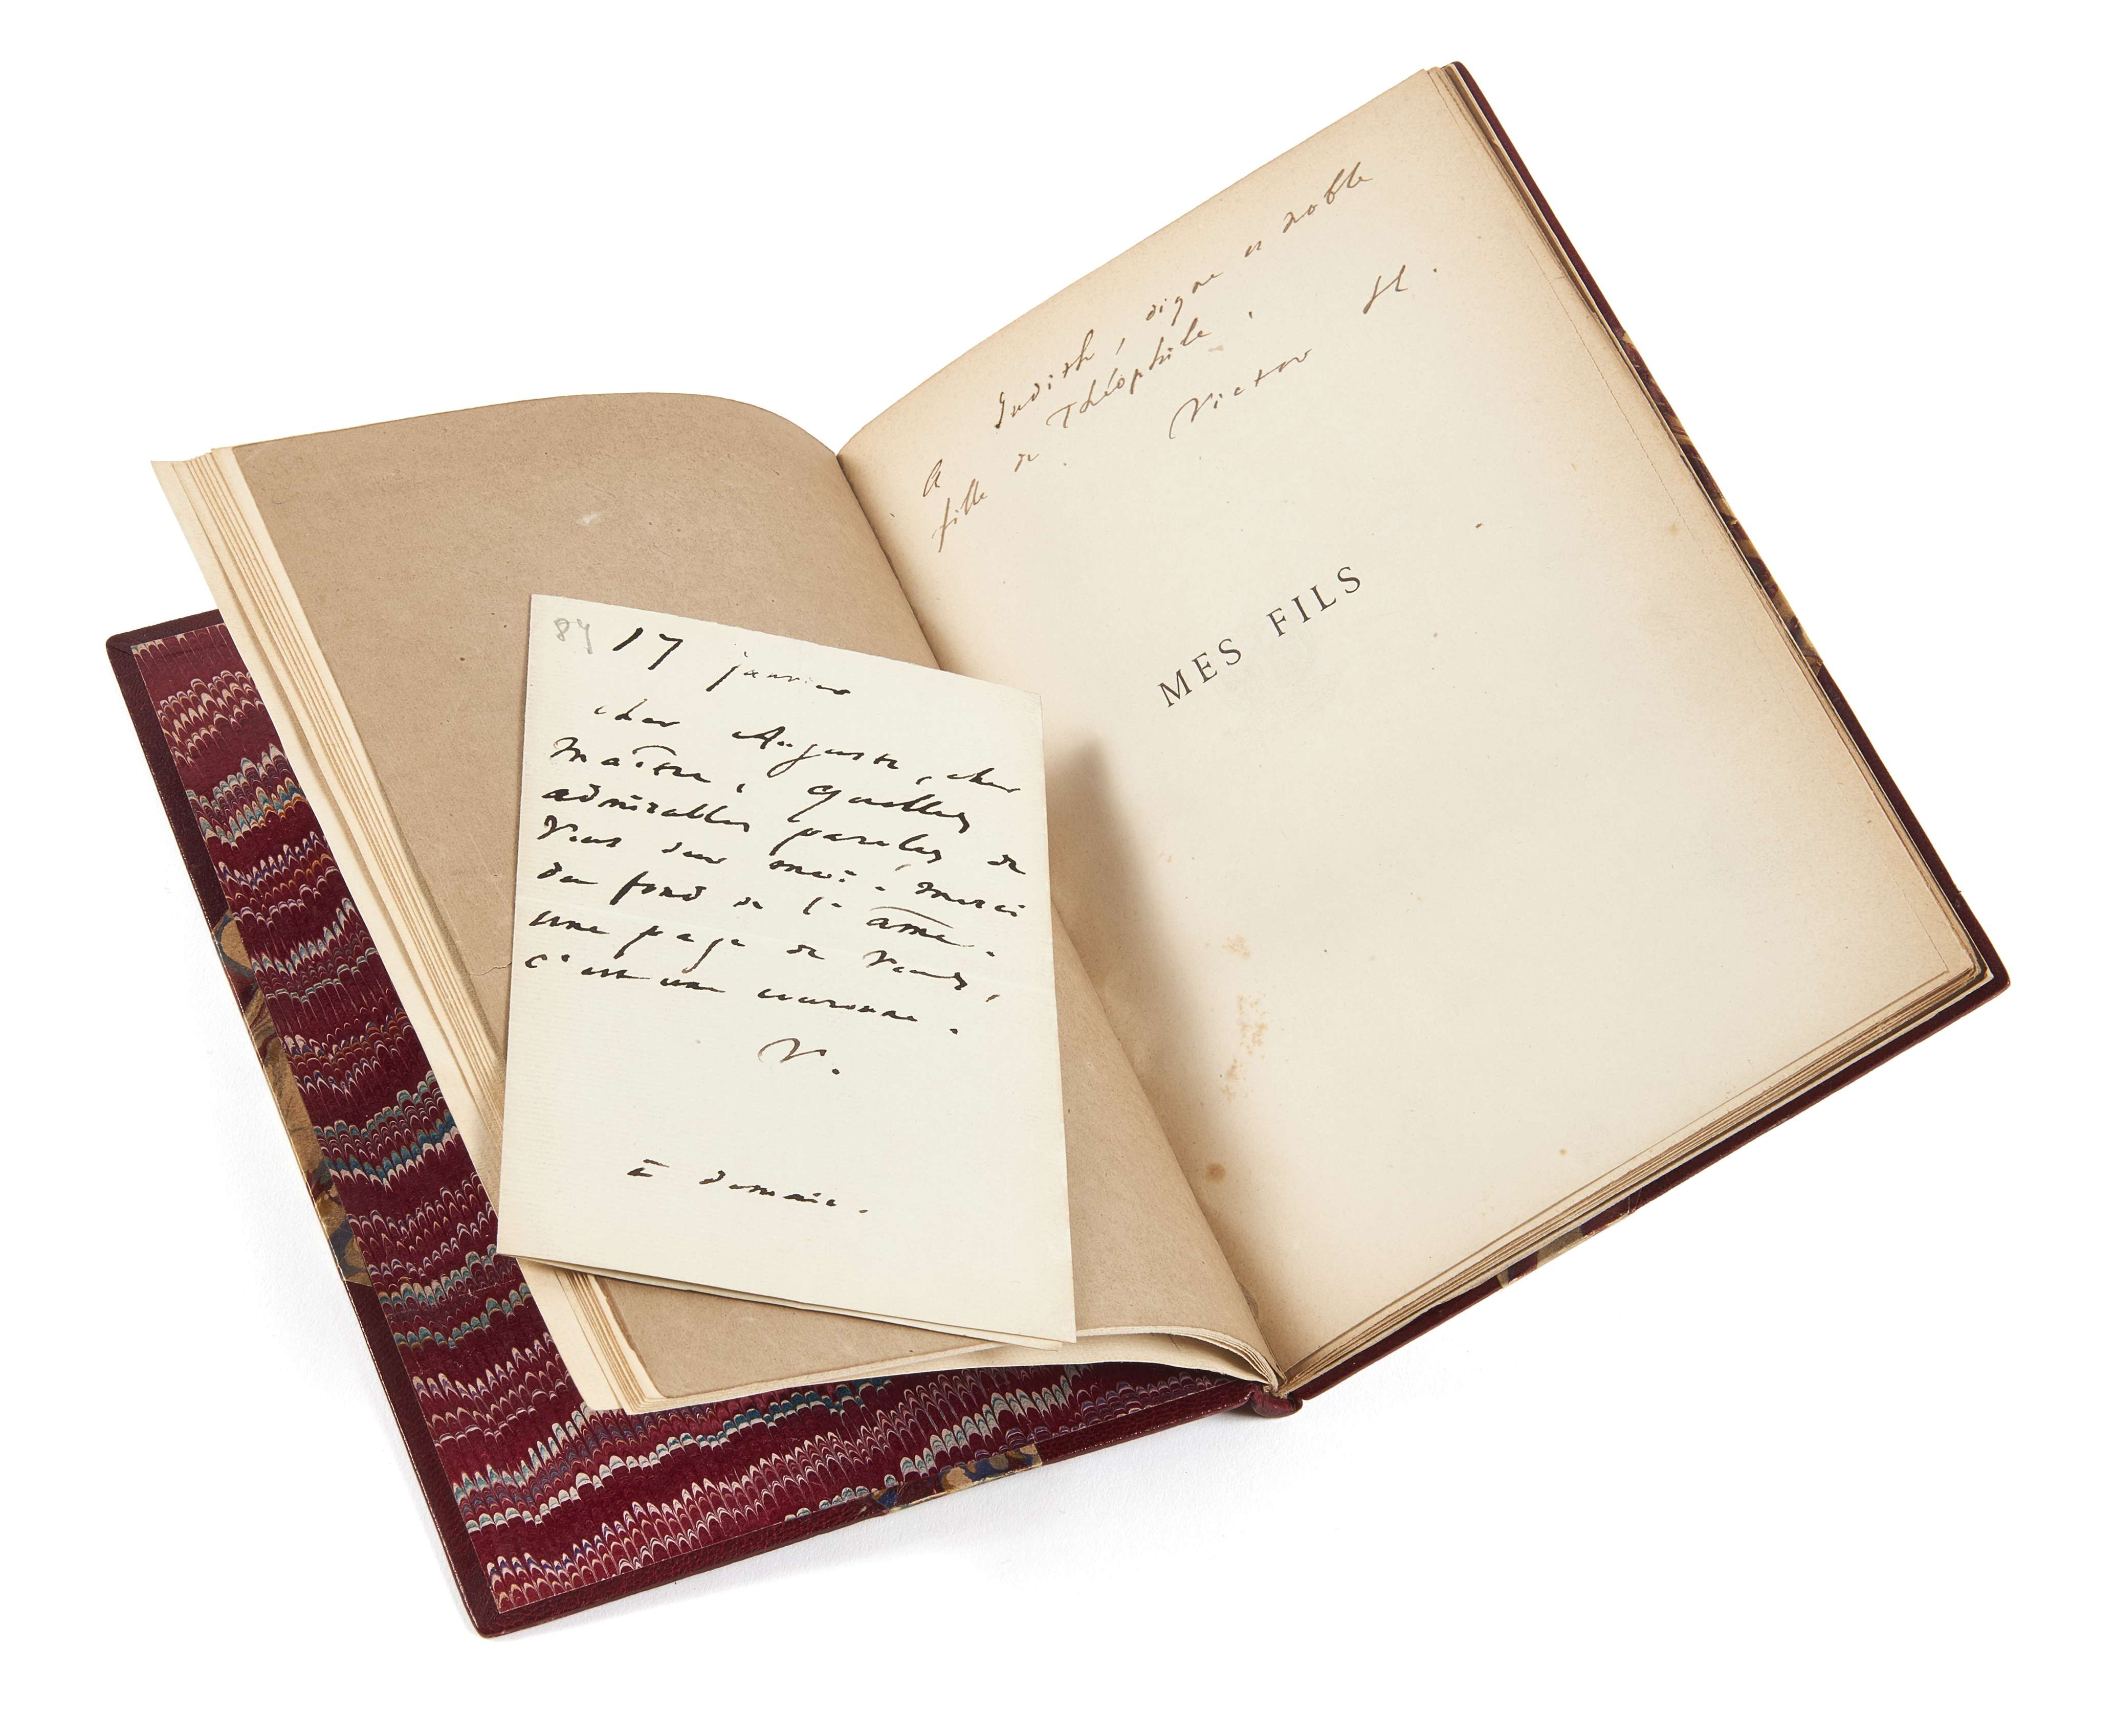 84
17 janvier
cher Auguste, cher
Maître, Quelles
admirables paroles de
vous sur moi. merci
du fond de l'âme.
une page de vous,
c'est une couronne.
V.
à demain.
A Judith, digne et noble
fille de Théophile.
Victor H.
MES FILS